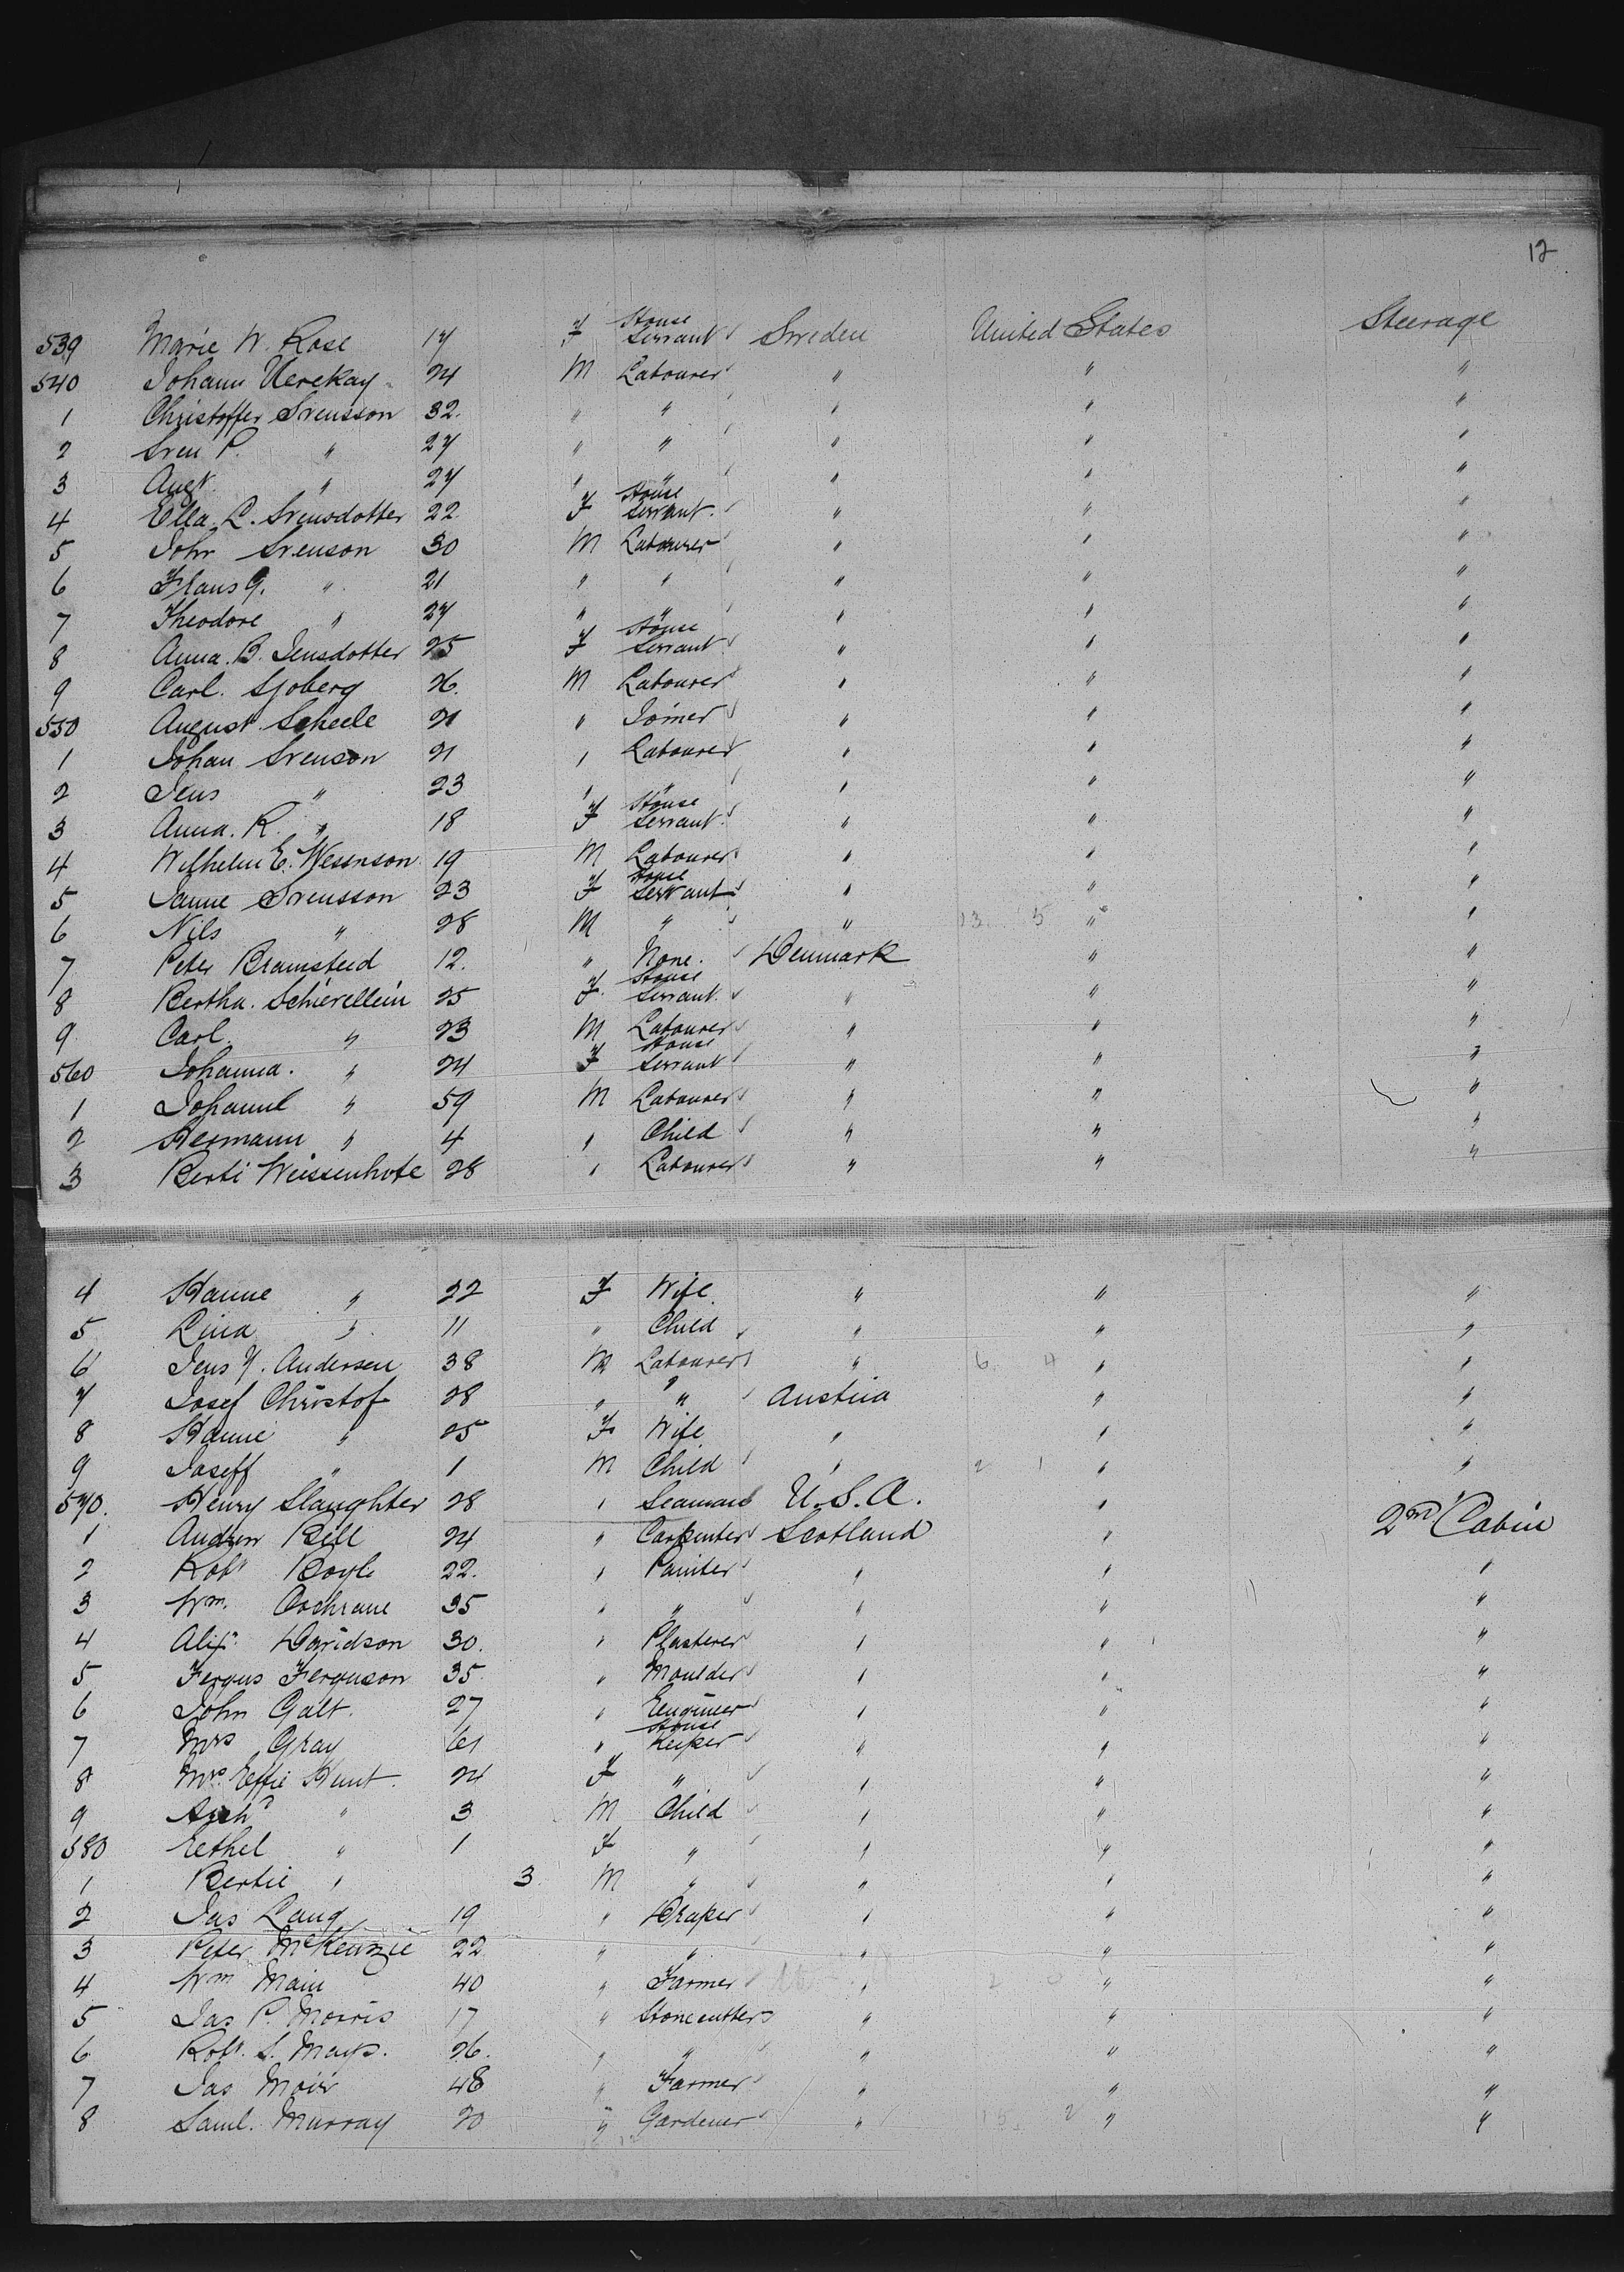 12
539 Marie W. Rose 17 F House Servant Sweden United States Steerage
540 Johann Uerekay 24 M Labourer " " "
1 Christoffer Svensson 32. " " " " "
2 Sven P. " 27 " " " " "
3 Augt. " 27 " " " " "
4 Ella L. Svensdotter 22. F House Servant. " " "
5 John Svenson 30 M Labourer " " "
6 Hans G. " 21 " " " " "
7 Theodore " 27 " " " " "
8 Anna. B. Jensdotter 25 F House Servant " " "
9 Carl. Sjoberg 26. M Labourer " " "
550 August Scheele 21 " Joiner " " "
1 Johan Svenson 21 " Labourer " " "
2 Jens " 23 " " " " "
3 Anna. R. " 18 F House Servant. " " "
4 Wilhelm E. Wesenson 19 M Labourer " " "
5 Janne Svensson 23 F House Servant " " "
6 Nils " 28 M " " 13. 5 " "
7 Peter Bramsteed 12. " None. Denmark " "
8 Bertha. Schierellein 25 F House Servant. " " "
9 Carl. " 23 M Labourer " " "
560 Johanna. " 24 F House Servant " " "
1 Johannl " 59 M Labourer " " "
2 Hermann " 4 " Child " " "
3 Berti Weissenhofe 28 " Labourer " " "
4 Hanne " 22 F Wife. " " "
5 Lina " 11 " Child " " "
6 Jens Y. Andersen 38 M Labourer " 6. 4 " "
7 Josef Christof 28 " " Austria " "
8 Hanne " 25 F Wife " " "
9 Joseff " 1 M Child " 2 1 " "
570. Henry Slaughter 28 " Seaman U.S.A. " "
1 Andrew Bell 24 " Carpenter Scotland " 2nd Cabin
2 Robt Boyle 22. " Painter " " "
3 Wm. Cochrane 35 " " " " "
4 Alexr. Davidson 30. " Plasterer " " "
5 Fergus Ferguson 35 " Moulder " " "
6 John Galt. 27 " Engineer " " "
7 Mrs Gray 61 " House Keeper " " "
8 Mrs. Effie Hunt. 24 F " " " "
9 Archd " 3 M Child " " "
580 Eethel " 1 F " " " "
1 Bertie " 3. M " " " "
2 Jas Lang 19 " Draper " " "
3 Peter McKenzie 22 " " " " "
4 Wm Main 40 " Farmer " 2 0 " "
5 Jas P. Morris 17 " Stonecutter " " "
6 Robt. S. Mays. 26. " " " " "
7 Jas Moir 48 " Farmer " " "
8 Saml. Murray 20 " Gardener " 15. 2 " "